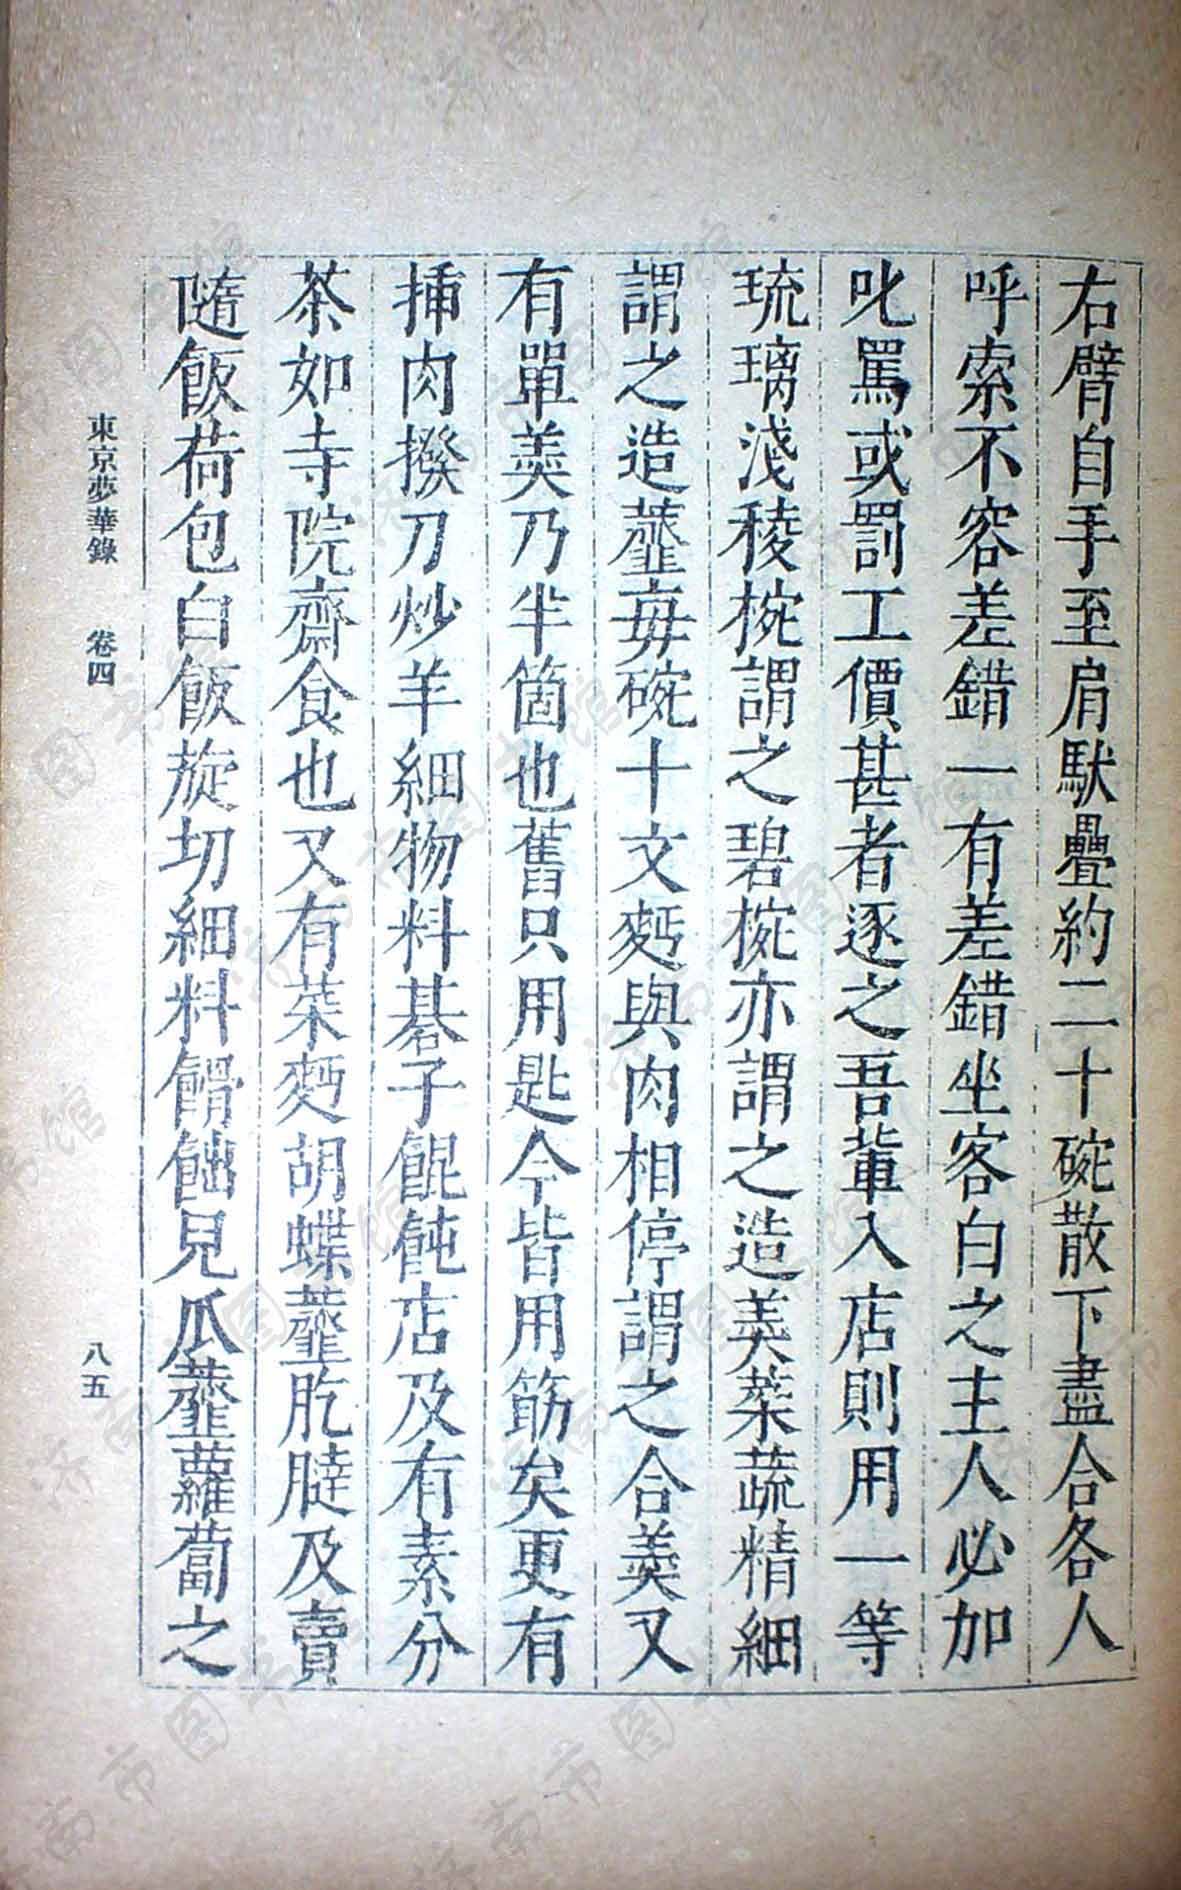 右臂自手至肩馱疊約二十碗散下盡合各人
呼索不容差錯一有差錯坐客白之主人必加
叱罵或罰工價甚者逐之吾輩入店則用一等
琉璃淺稜椀謂之碧椀亦謂之造羹菜蔬精細
謂之造虀每碗十文麪與肉相停謂之合羹又
有單羹乃半箇也舊只用匙今皆用筯矣更有
揷肉撥刀炒羊細物料棊子餛飩店及有素分
茶如寺院齋食也又有菜麪胡蝶虀肐𦜮及賣
隨飯荷包白飯旋切細料餶飿兒瓜虀蘿蔔之
東京夢華錄 卷四
八五